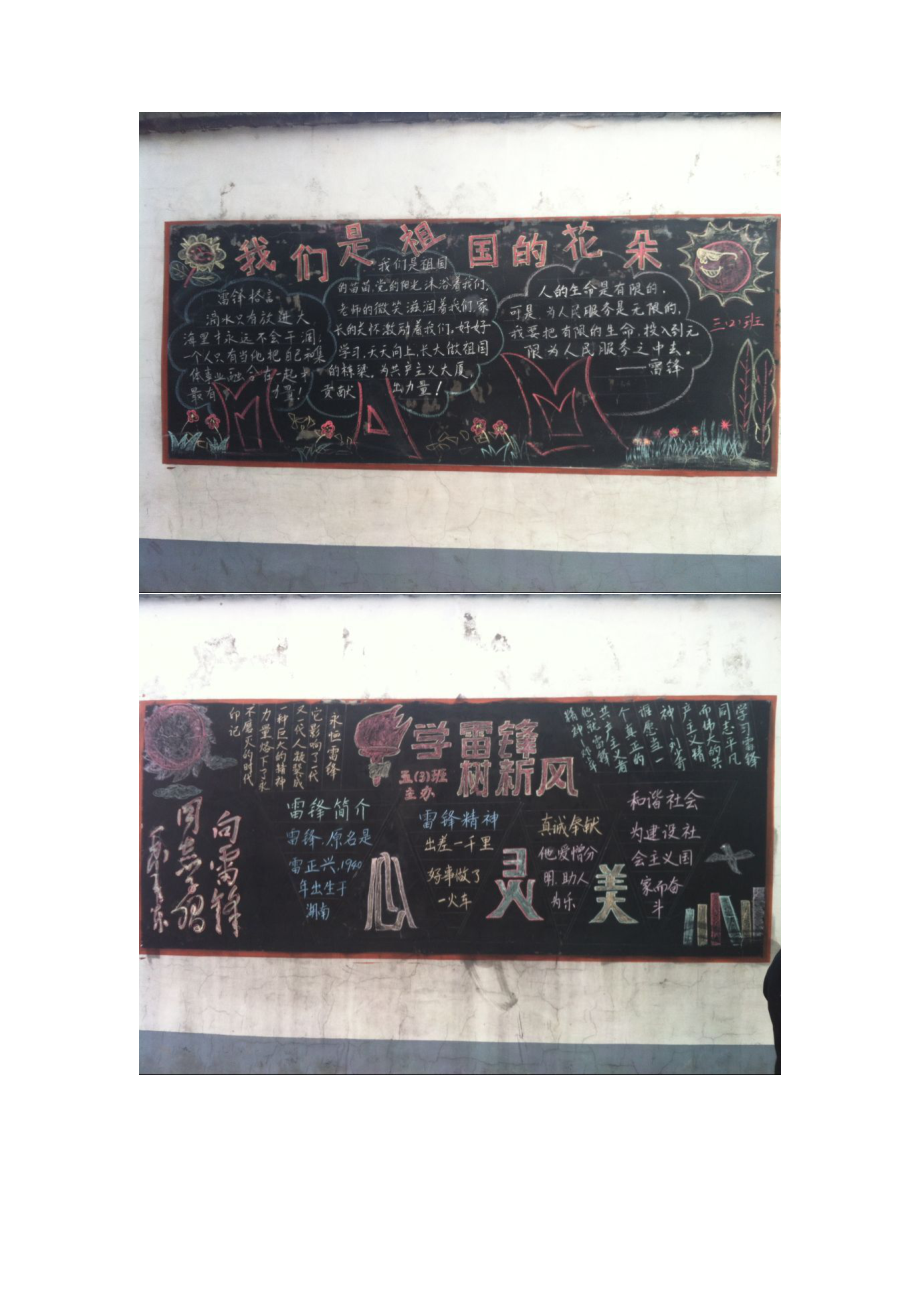 我们是祖国的花朵
三(2)班
雷锋格言:
滴水只有放进大
海里才永远不会干涸,
一个人只有当他把自己和集
体事业融合在一起
最有力量!
我们是祖国
的苗苗,党的阳光沐浴着我们,
老师的微笑滋润着我们,家
长的关怀激励着我们,好好
学习,天天向上,长大做祖国
的栋梁。为共产主义大厦
贡献出力量!
人的生命是有限的,
可是为人民服务是无限的,
我要把有限的生命,投入到无
限为人民服务之中去。
——雷锋
学雷锋
树新风
五(3)班
主办
永恒雷锋
它影响了一代
又一代人凝聚成
一种巨大的精神
力量烙下了永
不磨灭的时代
印记
向雷锋
同志学习
毛泽东
雷锋简介
雷锋,原名是
雷正兴,1940
年出生于
湖南
心
雷锋精神
出差一千里
好事做了
一火车
灵
真诚奉献
他爱憎分
明,助人
为乐
美
和谐社会
为建设社
会主义国
家而奋
斗
学习雷锋
同志平凡
而伟大的共
产主义精